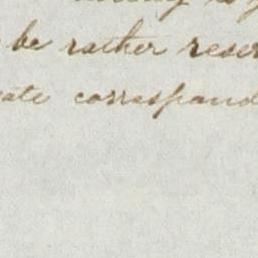 be rather reser
ate correspond